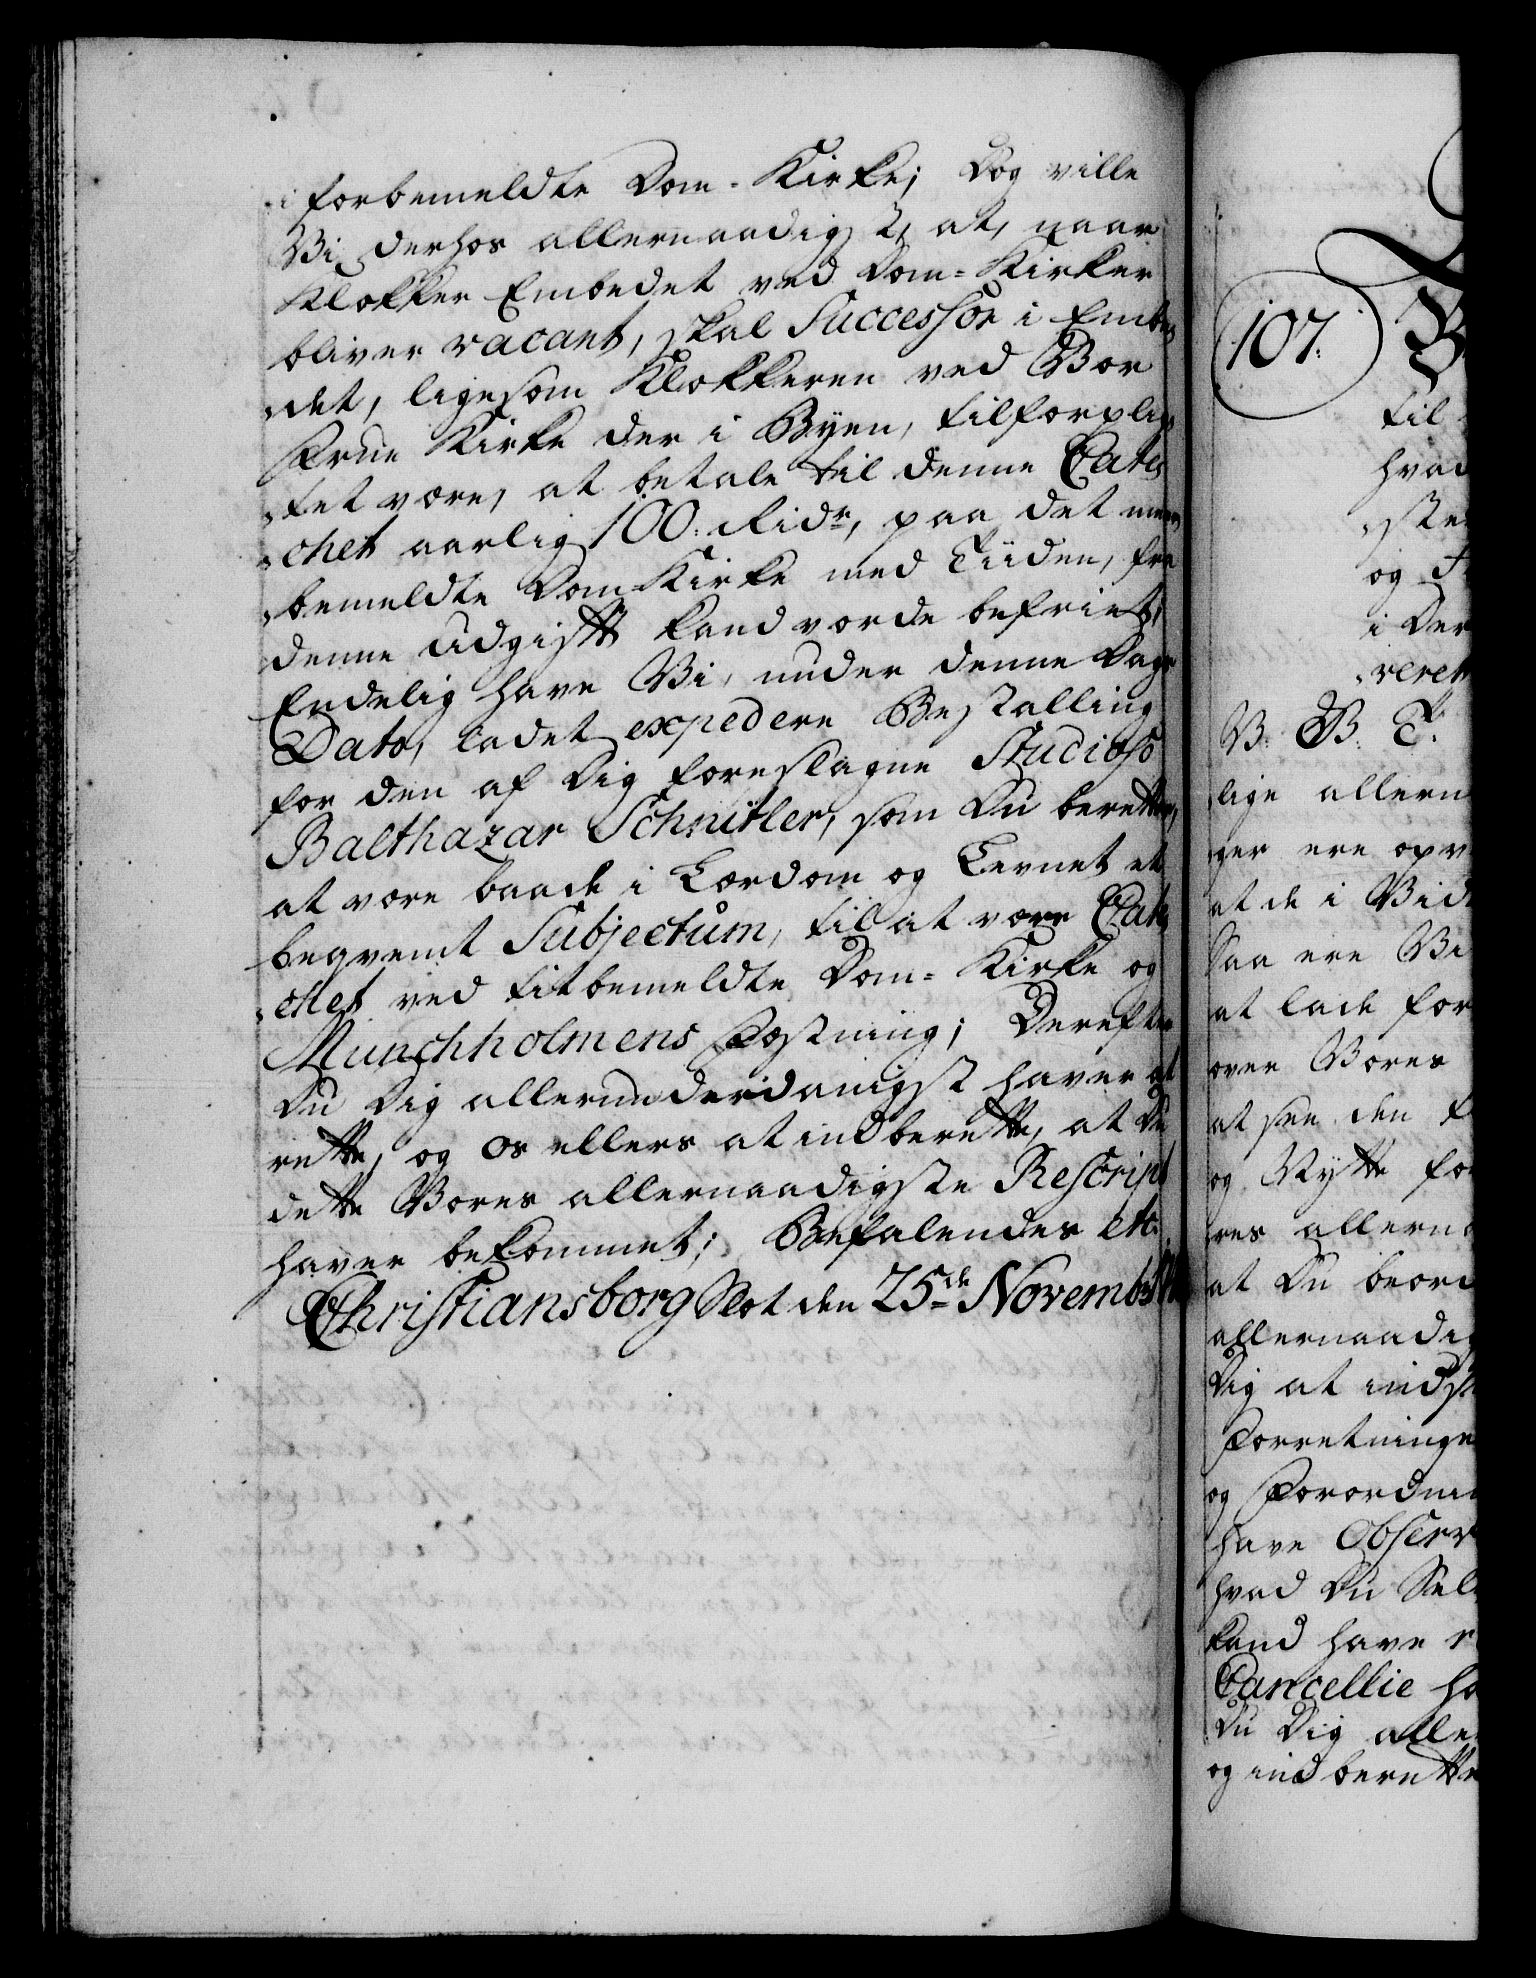 i forbemeldte Dom-Kirke; Dog ville
Vi derhos allernaadigst, at, naar
Klokker Embedet ved Dom-Kirken
bliver vacant, skal Successor i Embe-
det, ligesom Klokkeren ved Vor
Frue Kirke der i Byen, tilforplig-
tet være, at betale til denne Cate-
chet aarlig 100: Ridr, paa det meer-
bemeldte Dom-Kirke med Tiiden, fra
denne Udgift kand vorde befriet,
Endelig have Vi, under denne Dags
Dato, ladet expedere Bestalling
for den af Dig foreslagne Studioso
Balthazar Schnitler, som Du beretter,
at være baade i Lærdom og Levnet et
beqvemt Subjectum, til at være Cate-
chet ved titbemeldte Dom-Kirke og
Munchholmens Fæstning; Derefter
Du Dig allerunderdanigst haver at
rette, og os ellers at indberette, at Du
dette Vores allernaadigste Rescript
haver bekommet; Befalendes etc.
Christiansborg Slot den 25de Novembr
107.
til
hvad
og
i Der
V. G. T.
lige allern
ger ere opv
at de i Vid
Saa ere Vi
at lade for
over Vores
at see den
og Nytte for
res allerna
at Du beord
allernaadig
Dig at indst
Forretninge
og Forordni
have Observ
hvad Du Sel
kand have
Cancellie ha
Du Dig alle
og indberette